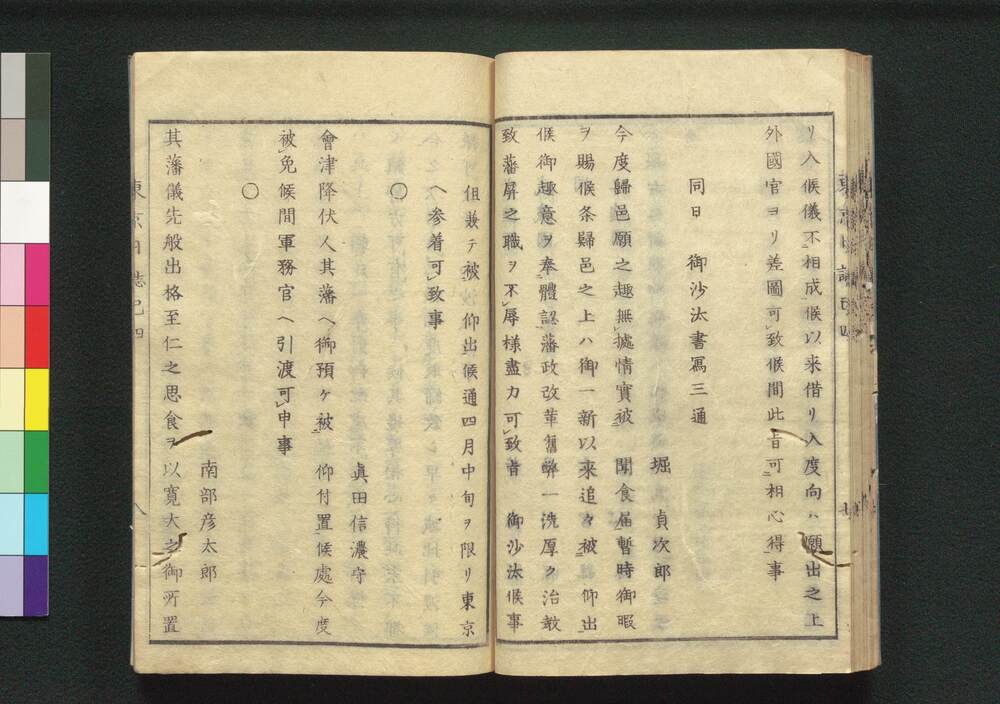 リ入候儀不相成候以来借リ入度向ハ願出之上
外國官ヨリ差圖可致候間此旨可相心得事
同日 御沙汰書寫三通
堀貞次郎
今度歸邑願之趣無據情實被 聞食届暫時御暇
ヲ賜候条歸邑之上ハ御一新以来追々被 仰出
候御趣意ヲ奉體認藩政改革舊弊一洗厚ク治教
致藩屏之職ヲ不辱様盡力可致旨 御沙汰候事
但兼テ被 仰出候通四月中旬ヲ限リ東京
ヘ参着可致事
○
眞田信濃守
會津降伏人其藩ヘ御預ケ被 仰付置候處今度
被免候間軍務官ヘ引渡可申事
○
南部彦太郎
其藩儀先般出格至仁之思食ヲ以寛大之御所置
東京日誌 巳四 八